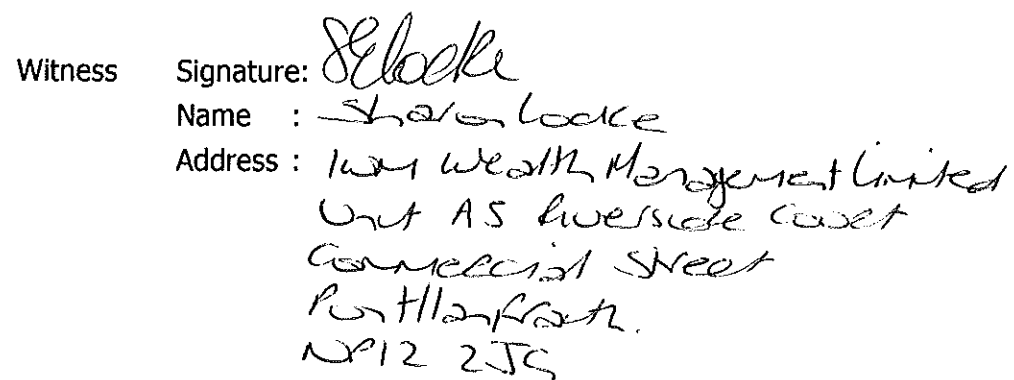 Witness Signature: SElocke
Name : Sharon Locke
Address : IWM Wealth Management Limited
Unit A5 Riverside Court
Commercial Street
Pontllanfraith.
NP12 2JG